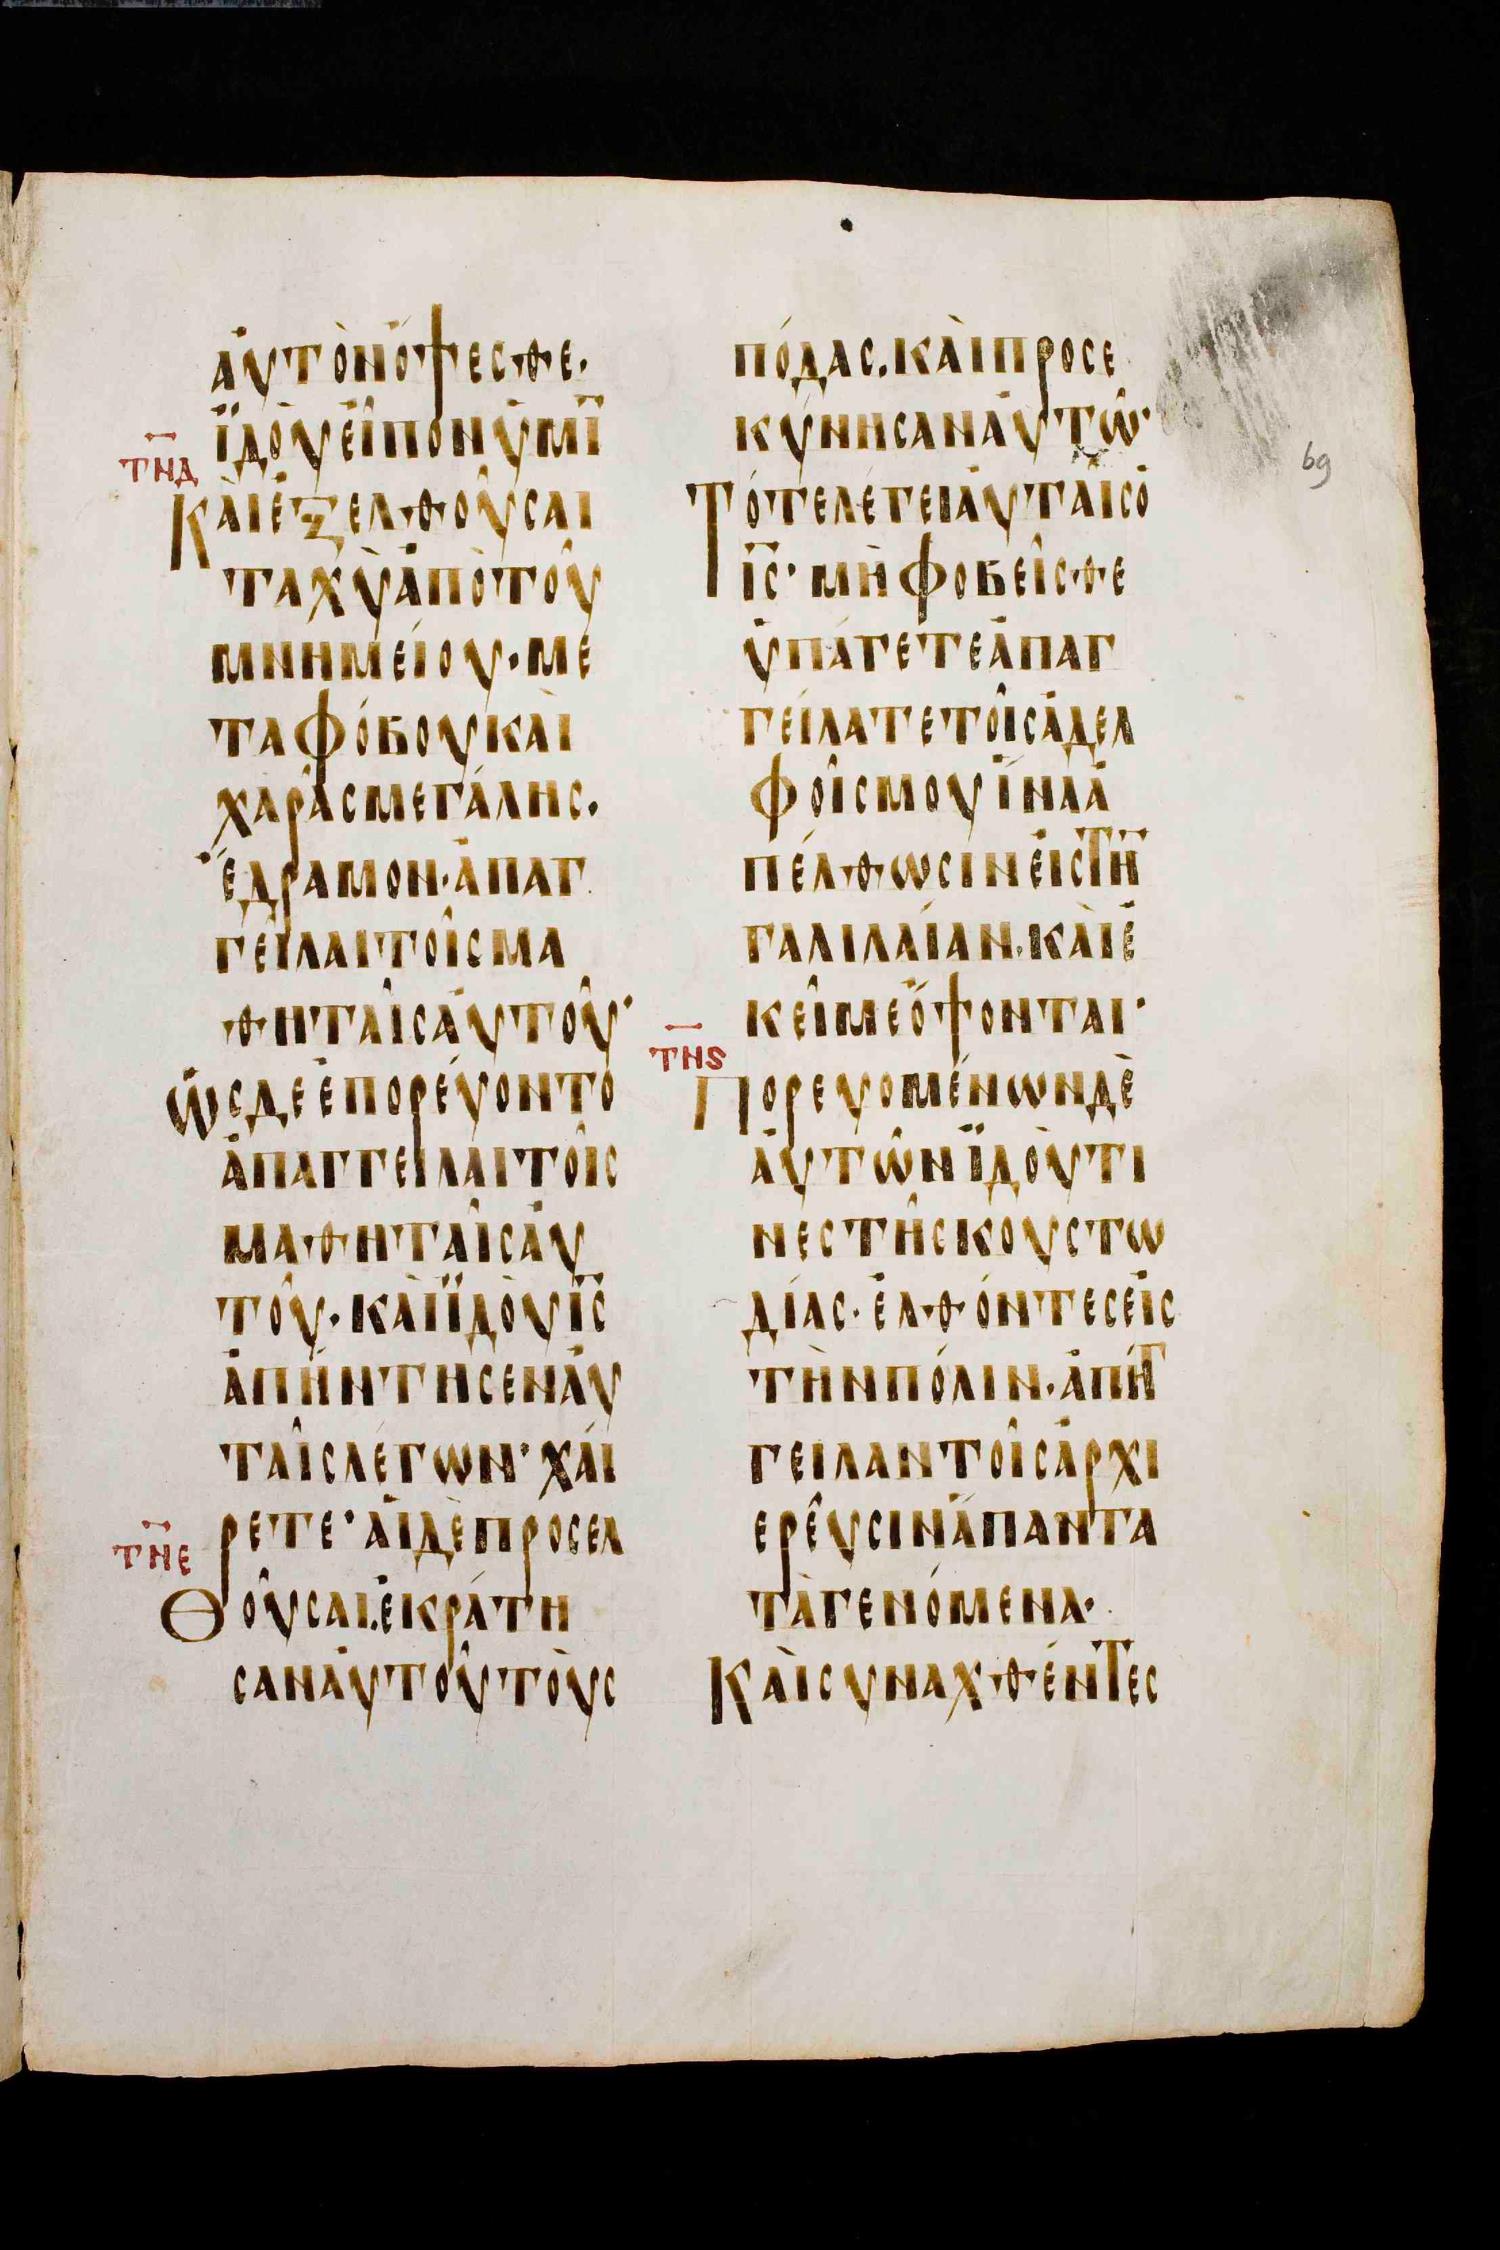 ἀυτὸνόψεσθε·
ϊδοὺεῖπονὑμῖ̄
τ̄ν̄δ̄
Κὰιἐξελθοῦσαι
ταχὺἀπὸτοῦ
μνημείου·με
ταφόβουκὰι
χαρᾶσμεγάλησ.
ἔδραμον·ἀπαγ
γεῖλαιτοῖσμα
θηταῖσἀυτοῦ·
Ὡσδεἐπορέυοντο
ἀπαγγεῖλαιτοῖσ
μαθηταῖσἀυ
τοῦ·κὰιϊδὸυῑσ̄
ἀπήντησενἀυ
ταῖσλέγων·χάι
ρετε·ἀιδὲπροσελ
τ̄ν̄ε̄
Θοῦσαι.ἐκράτη
σαναυτοῦτὸυσ
πόδασ.κὰιπροσε
κύνησαναυτῶ·
Τότελέγειἀυτᾶισὁ
ῑσ̄·μὴφοβεῖσθε
ὑπάγετεἀπαγ
γείλατετοῖσἀδελ
φοῖσμουἵναἀ
πέλθωσινἐιστὴ̄
γαλιλαίαν.κὰιἐ
κεῖμεὄψονται·
τ̄ν̄ϛ̄
Πορευομένωνδὲ
ἀυτῶνϊδὸυτι
νεστῆσκουστω
δίασ·ἐλθόντεσἐισ
τὴνπόλιν·ἀπήγ
γειλαντοῖσἀρχι
ερεῦσινἅπαντα
τὰγενόμενα·
Κὰισυναχθέντεσ
69